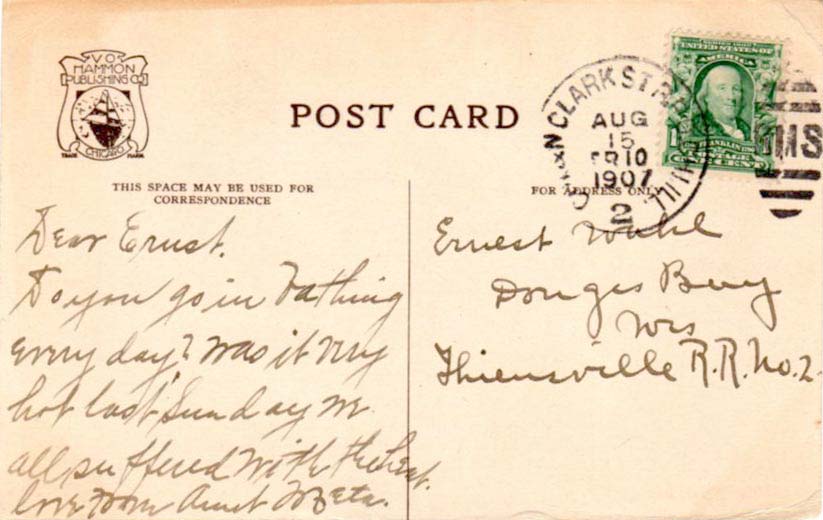 V O
HAMMON
PUBLISHING CO
TRADE MARK
CHICAGO
POST CARD
THIS SPACE MAY BE USED FOR
CORRESPONDENCE
Dear Ernst.
Do you go in Bathing
every day? Was it very
hot last Sunday we
all suffered with the heat.
love from Aunt Meta.
CLARK ST
AUG
15
10
1907
2
ILL.
SERIES 1902
UNITED STATES OF
AMERICA
FRANKLIN
POSTAGE
CENT
FOR ADDRESS ONLY
Ernest Wahl
Donges Bay
Wis
Thiensville R.R. No. 2